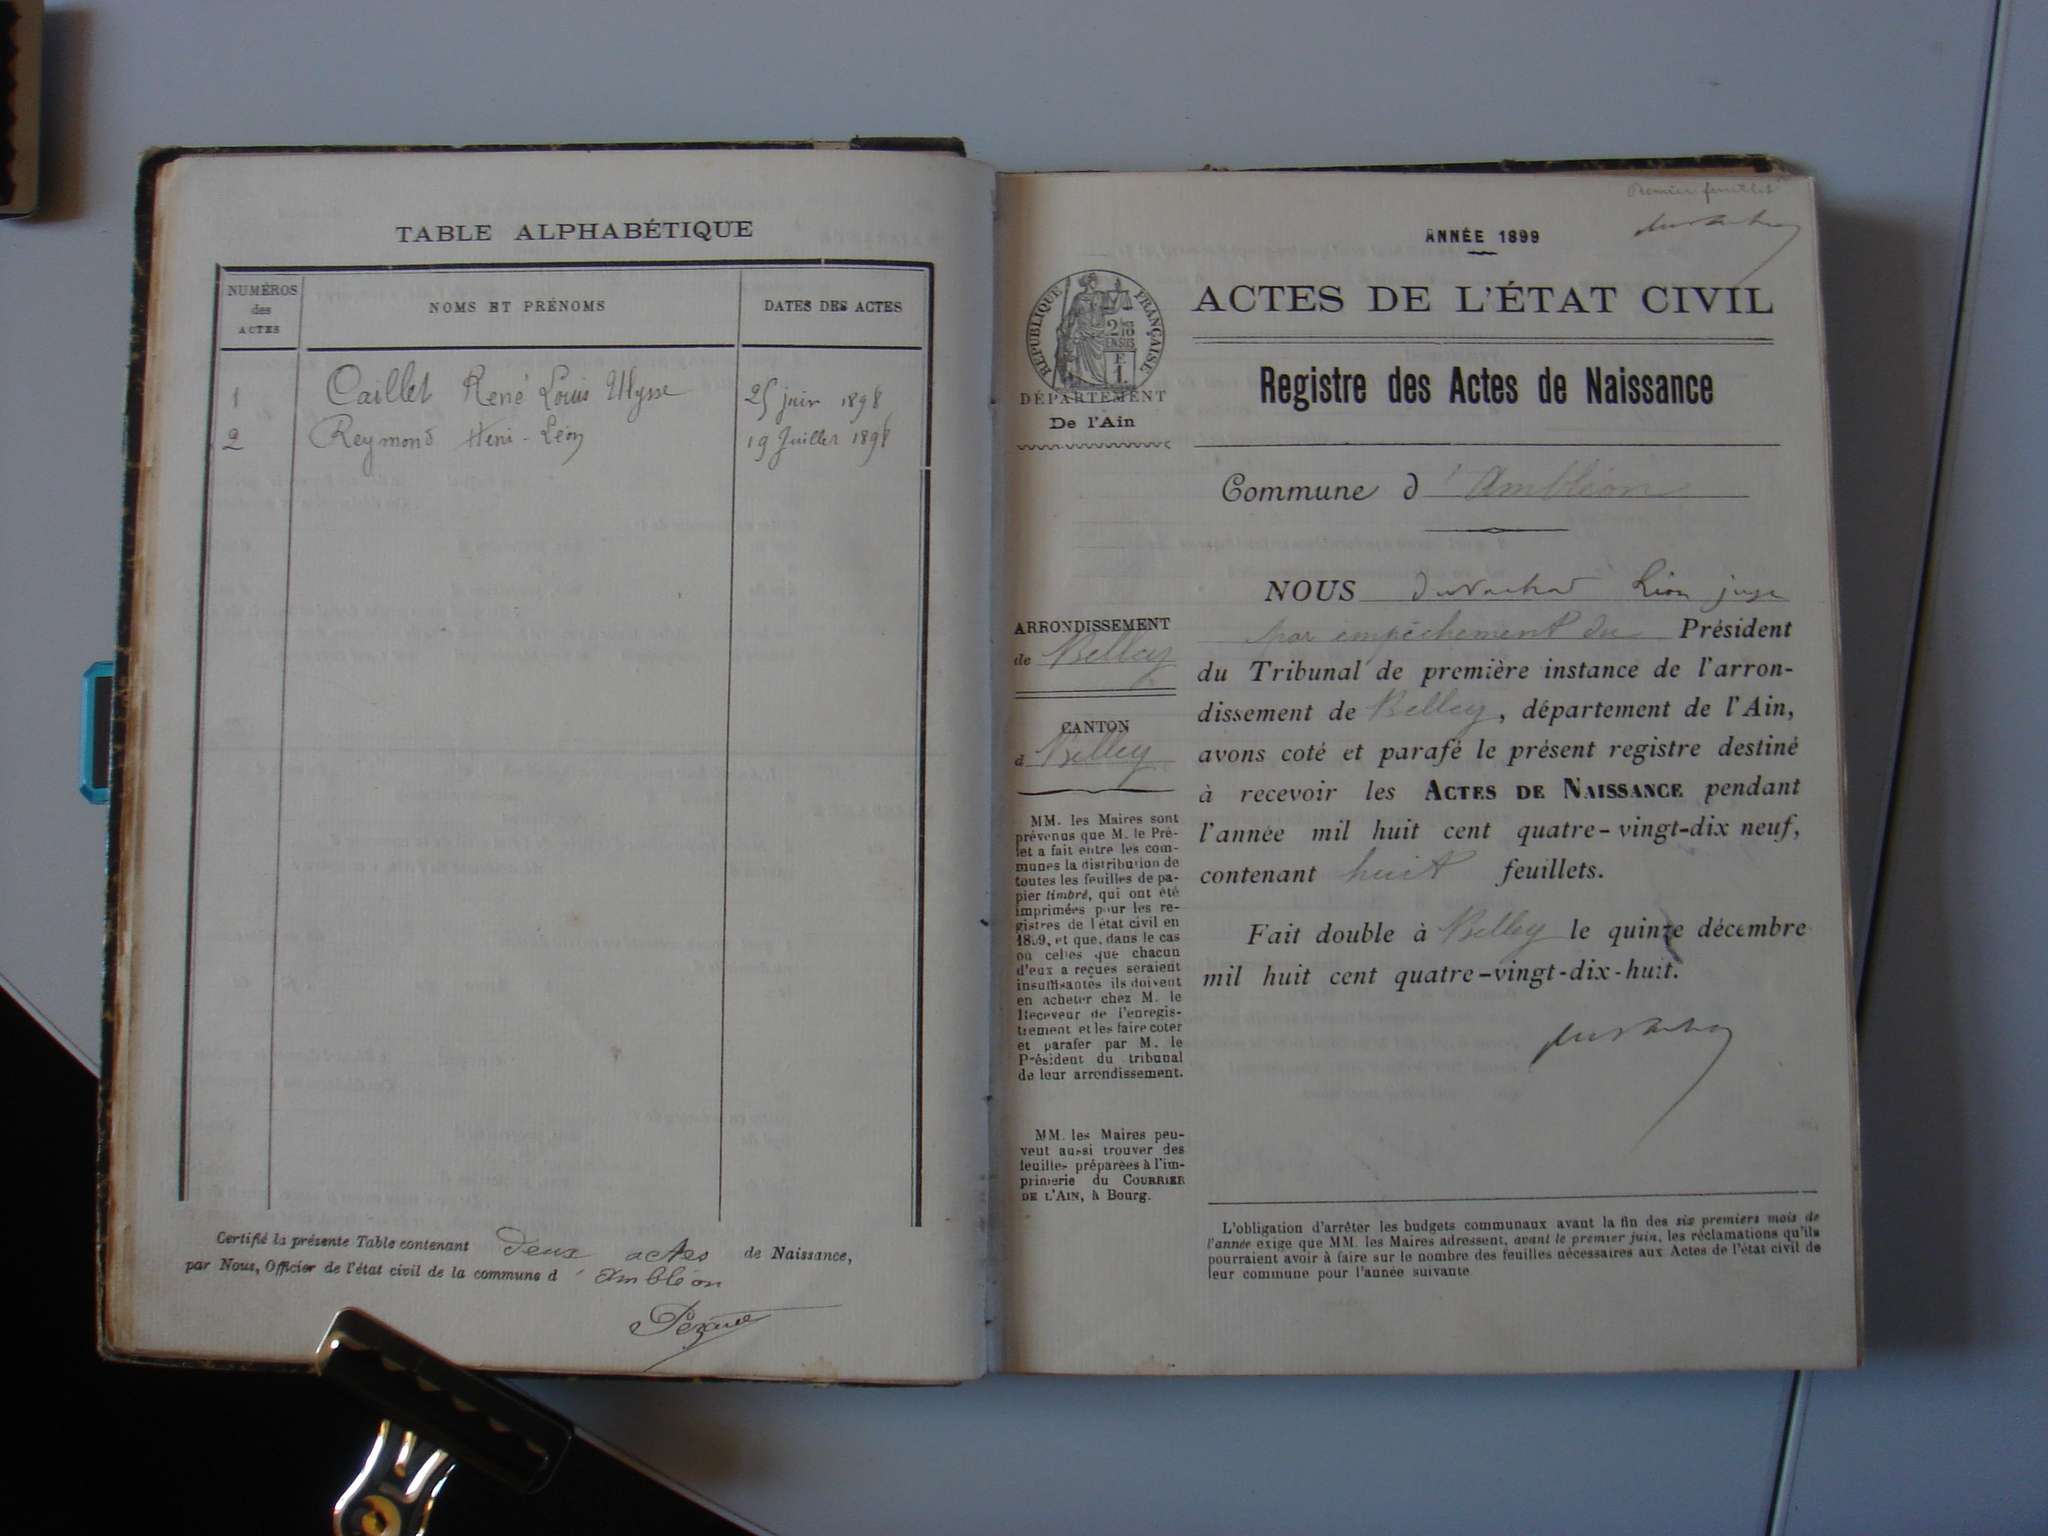 TABLE ALPHABÉTIQUE
NUMÉROS
des
ACTES
NOMS ET PRÉNOMS
DATES DES ACTES
1 Caillet René Louis Ulysse 25 juin 1898
2 Reymond Heni-Léon 19 Juillet 1898
Certifié la présente Table contenant deux actes de Naissance,
par Nous, Officier de l'état civil de la commune d' Ambléon
Premier feuillet
ANNÉE 1899
RÉPUBLIQUE FRANÇAISE
ACTES DE L'ÉTAT CIVIL
Registre des Actes de Naissance
DÉPARTEMENT
De l'Ain
Commune d' Ambléon
ARRONDISSEMENT
de Belley
CANTON
d Belley
MM. les Maires sont
prévenus que M. le Pré-
fet a fait entre les com-
munes la distribution de
toutes les feuilles de pa-
pier timbré, qui ont été
imprimées pour les re-
gistres de l'état civil en
1899, et que, dans le cas
où celles que chacun
d'eux a reçues seraient
insuffisantes ils doivent
en acheter chez M. le
Receveur de l'enregis-
trement et les faire coter
et parafer par M. le
Président du tribunal
de leur arrondissement.
MM. les Maires peu-
vent aussi trouver des
feuilles préparées à l'im-
primerie du COURRIER
DE L'AIN, à Bourg.
NOUS Léon juge
par empêchement du Président
du Tribunal de première instance de l'arron-
dissement de Belley, département de l'Ain,
avons coté et parafé le présent registre destiné
à recevoir les ACTES DE NAISSANCE pendant
l'année mil huit cent quatre-vingt-dix neuf,
contenant huit feuillets.
Fait double à Belley le quinze décembre
mil huit cent quatre-vingt-dix-huit.
L'obligation d'arrêter les budgets communaux avant la fin des six premiers mois de
l'année exige que MM. les Maires adressent, avant le premier juin, les réclamations qu'ils
pourraient avoir à faire sur le nombre des feuilles nécessaires aux Actes de l'état civil de
leur commune pour l'année suivante